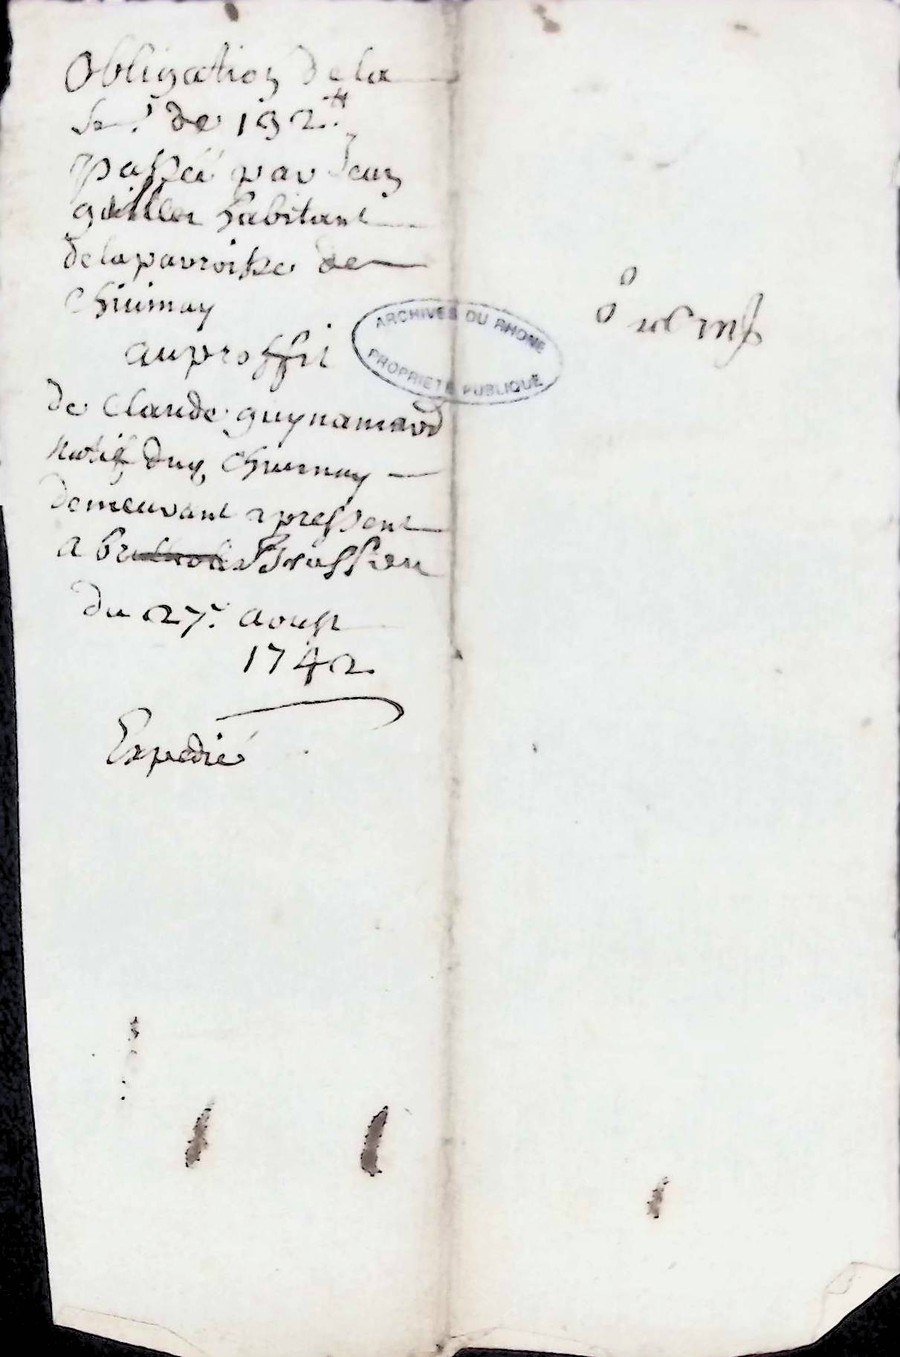 Obligation de la
So.e de 192 ₶
passeé par Jean
habitant
de la parroisse de
Chiurnay
au proffit
de Claude guynamard
Natif dud. Chiurnay
demeurant apressent
a Brussieu
du 27.e aoust
1742
Expedié
ARCHIVES DU RHONE
PROPRIETE PUBLIQUE